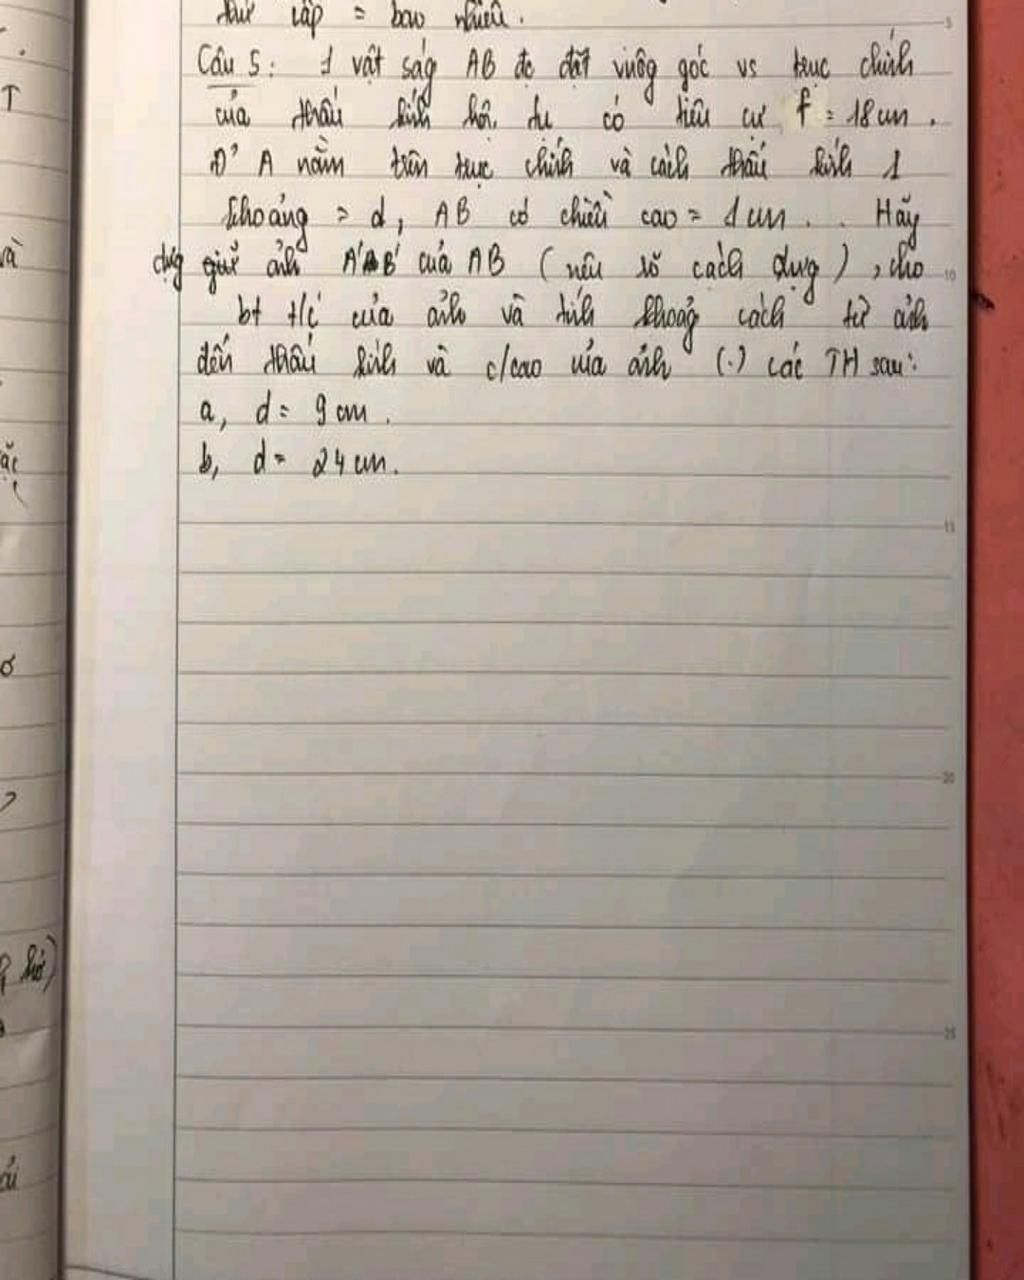 thứ cấp = bao nhiêu.
Câu 5: 1 vật ság AB đc đặt vuôg góc vs trục chính
của thấu kính hội tụ có tiêu cự f = 18 cm.
Đ' A nằm trên trục chính và cách thấu kính 1
khoảng = d, AB có chiều cao = 1 cm. . Hãy
dựg ảnh A'B' của AB (nêu rõ cách dựng), cho
bt t/c của ảnh và tính khoảg cách từ ảnh
đến thấu kính và c/cao của ảnh (.) các TH sau:
a, d = 9 cm.
b, d = 24 cm.